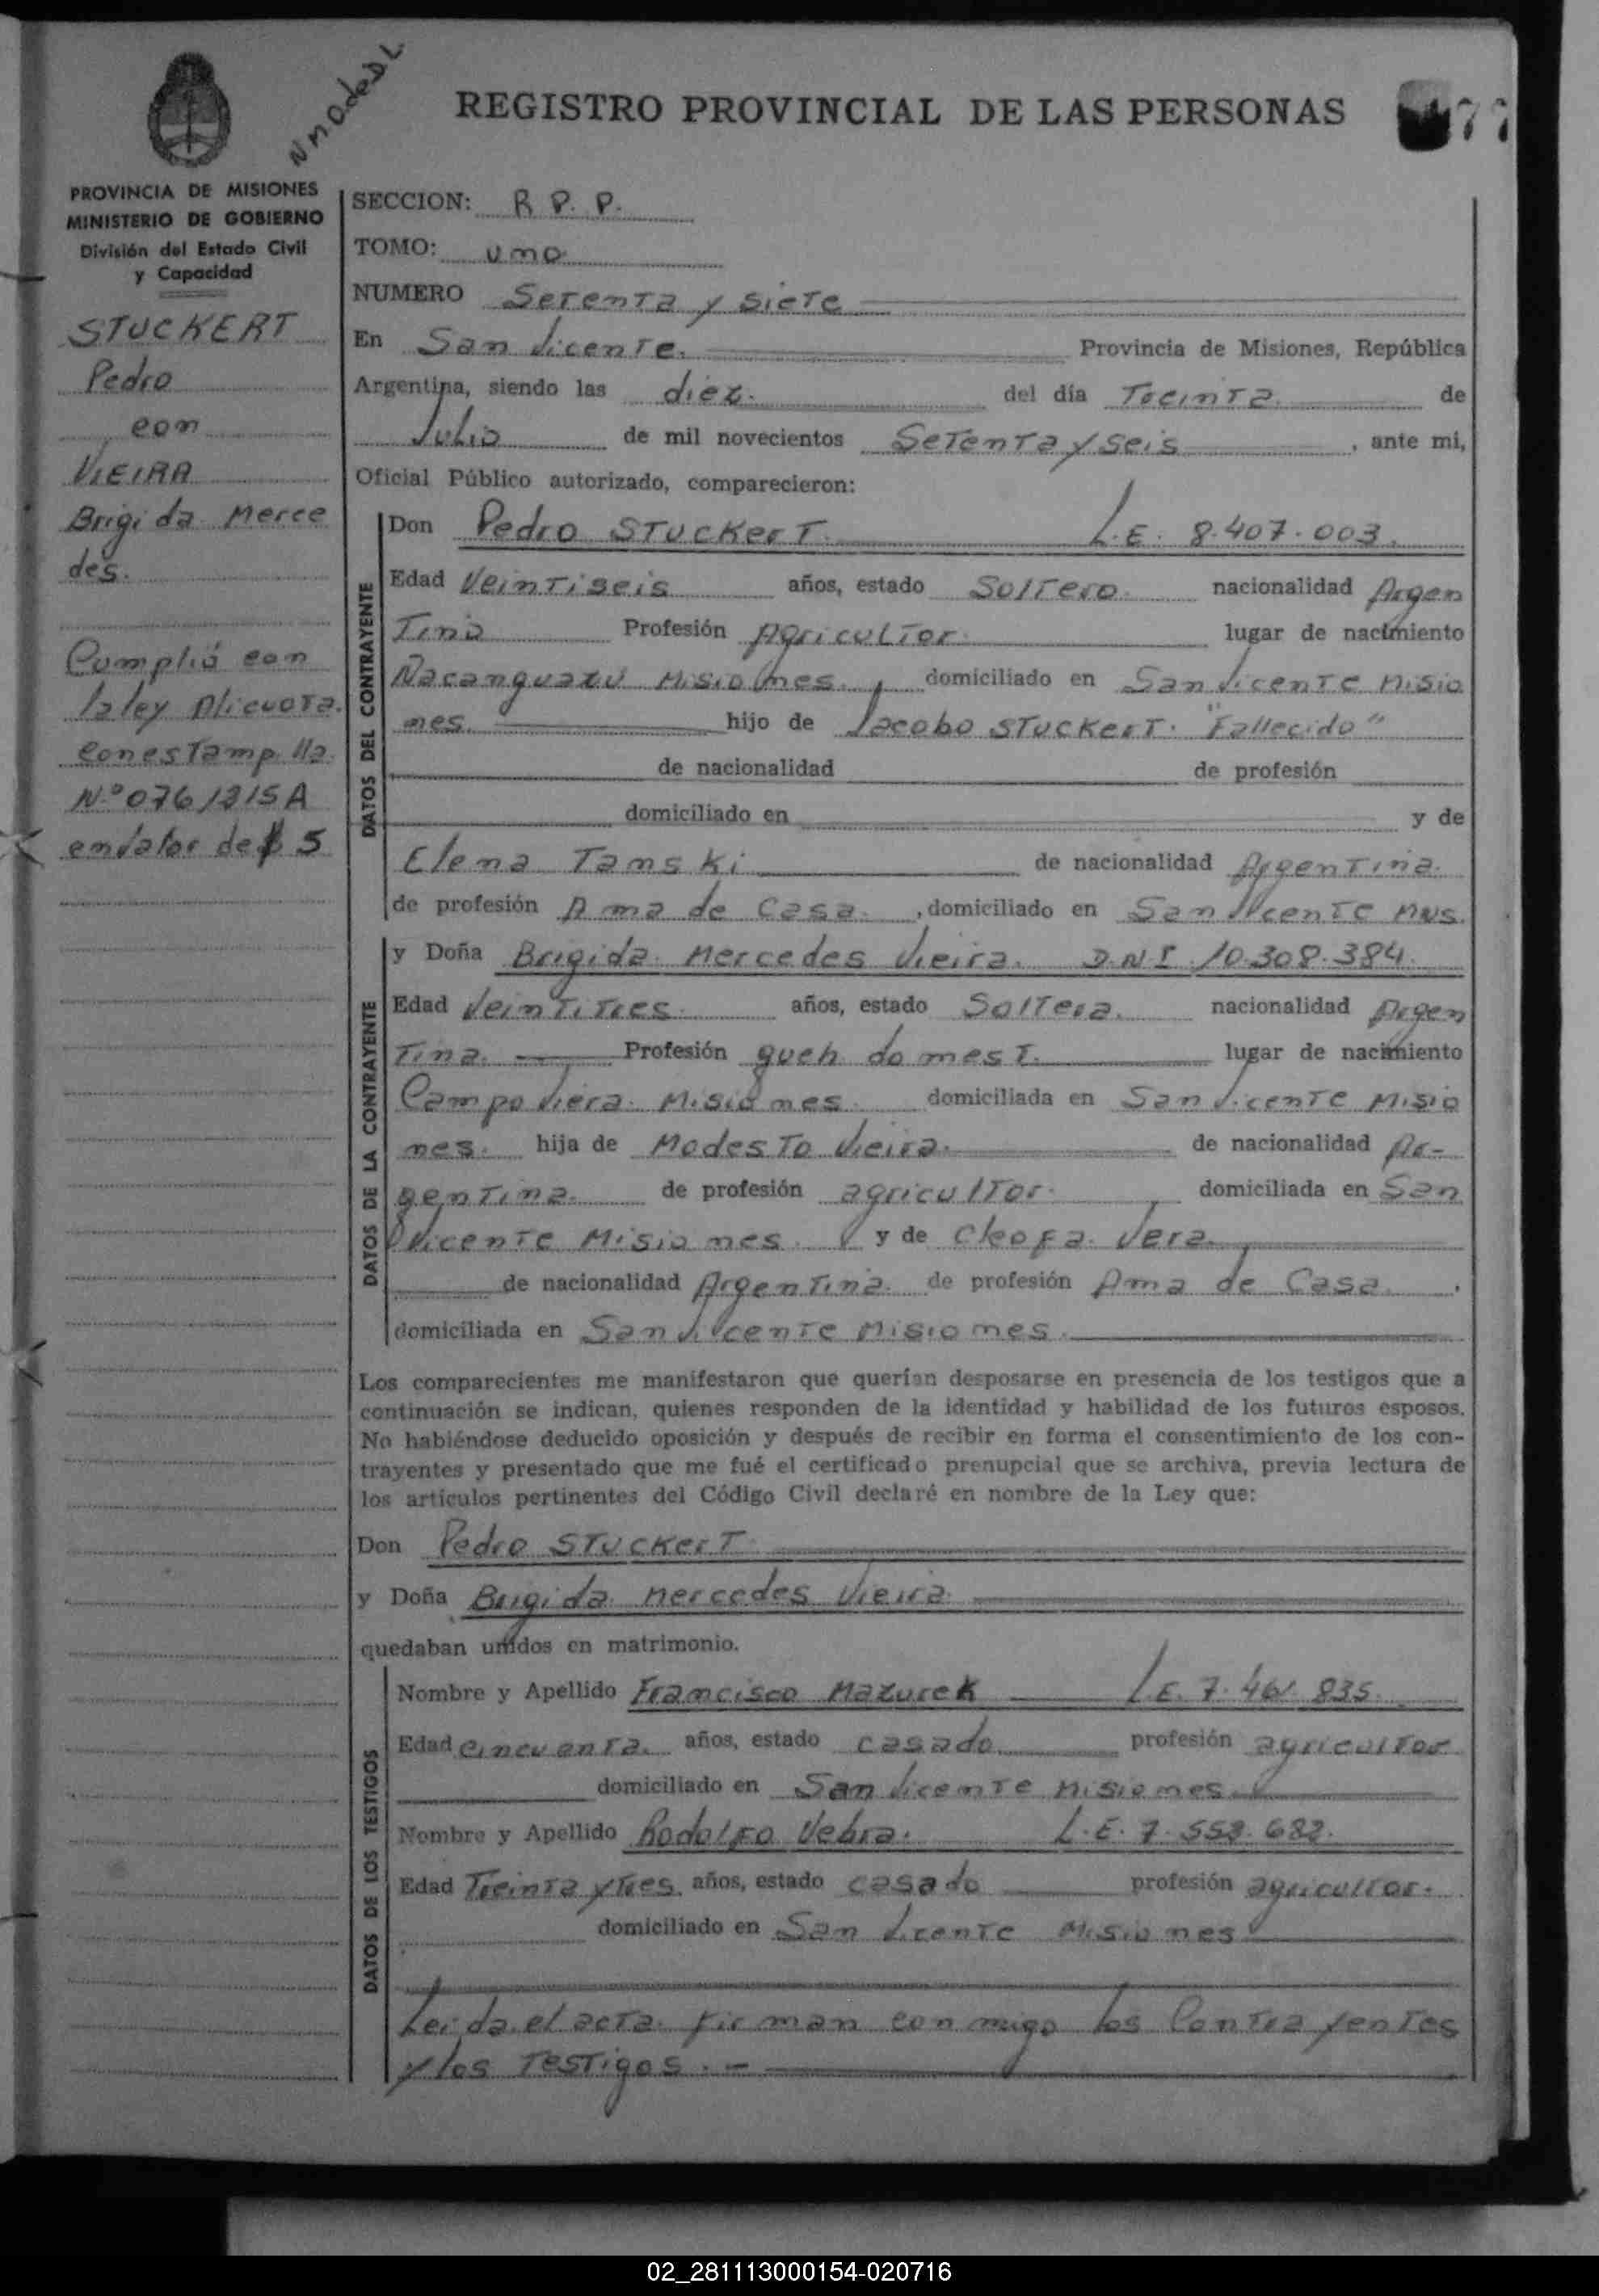 REGISTRO PROVINCIAL DE LAS PERSONAS
77
PROVINCIA DE MISIONES
MINISTERIO DE GOBIERNO
División del Estado Civil
y Capacidad
STUCKERT
Pedro
con
VIEIRA
Brigida Merce
des.
Cumplió con
la ley Alicuota.
con estampilla
N.º 0761315A
en valor de $ 5
SECCION: R P. P.
TOMO: uno
NUMERO Setenta y siete
En San Vicente. Provincia de Misiones, República
Argentina, siendo las diez. del día Treinta de
Julio de mil novecientos Setenta y seis, ante mi,
Oficial Público autorizado, comparecieron:
DATOS DEL CONTRAYENTE
Don Pedro STUCKerT. L.E. 8.407.003.
Edad Veintiseis años, estado Soltero. nacionalidad Argen
Tina Profesión Agricultor. lugar de nacimiento
Ñacanguazú Misiones. domiciliado en San Vicente Misio
nes. hijo de Jacobo STUCKerT. "Fallecido"
de nacionalidad de profesión
domiciliado en y de
Elena Tamski de nacionalidad Argentina.
de profesión Ama de Casa., domiciliado en San Vicente Mns.
DATOS DE LA CONTRAYENTE
y Doña Brigida Mercedes Vieira. D.N.I. 10.308.384.
Edad Veintitres. años, estado Soltera. nacionalidad Argen
Tina. Profesión queh. domest. lugar de nacimiento
Campo Viera. Misiones. domiciliada en San Vicente Misio
nes. hija de Modesto Vieira. de nacionalidad Ar-
gentina. de profesión agricultor. domiciliada en San
Vicente Misiones. y de Cleofa. Vera.
de nacionalidad Argentina. de profesión Ama de Casa.
domiciliada en San Vicente Misiones.
Los comparecientes me manifestaron que querían desposarse en presencia de los testigos que a
continuación se indican, quienes responden de la identidad y habilidad de los futuros esposos.
No habiéndose deducido oposición y después de recibir en forma el consentimiento de los con-
trayentes y presentado que me fué el certificado prenupcial que se archiva, previa lectura de
los artículos pertinentes del Código Civil declaré en nombre de la Ley que:
Don Pedro STUCKerT.
y Doña Brigida Mercedes Vieira
quedaban unidos en matrimonio.
DATOS DE LOS TESTIGOS
Nombre y Apellido Francisco Mazurek L.E. 7.461.835.
Edad cincuenta. años, estado casado profesión agricultor
domiciliado en San Vicente Misiones
Nombre y Apellido Rodolfo Vebra. L.E. 7.553.682.
Edad Treinta y tres. años, estado casado profesión agricultor.
domiciliado en San Vicente Misiones
Leida el acta firman conmigo los Contrayentes
y los Testigos.-
02_281113000154-020716